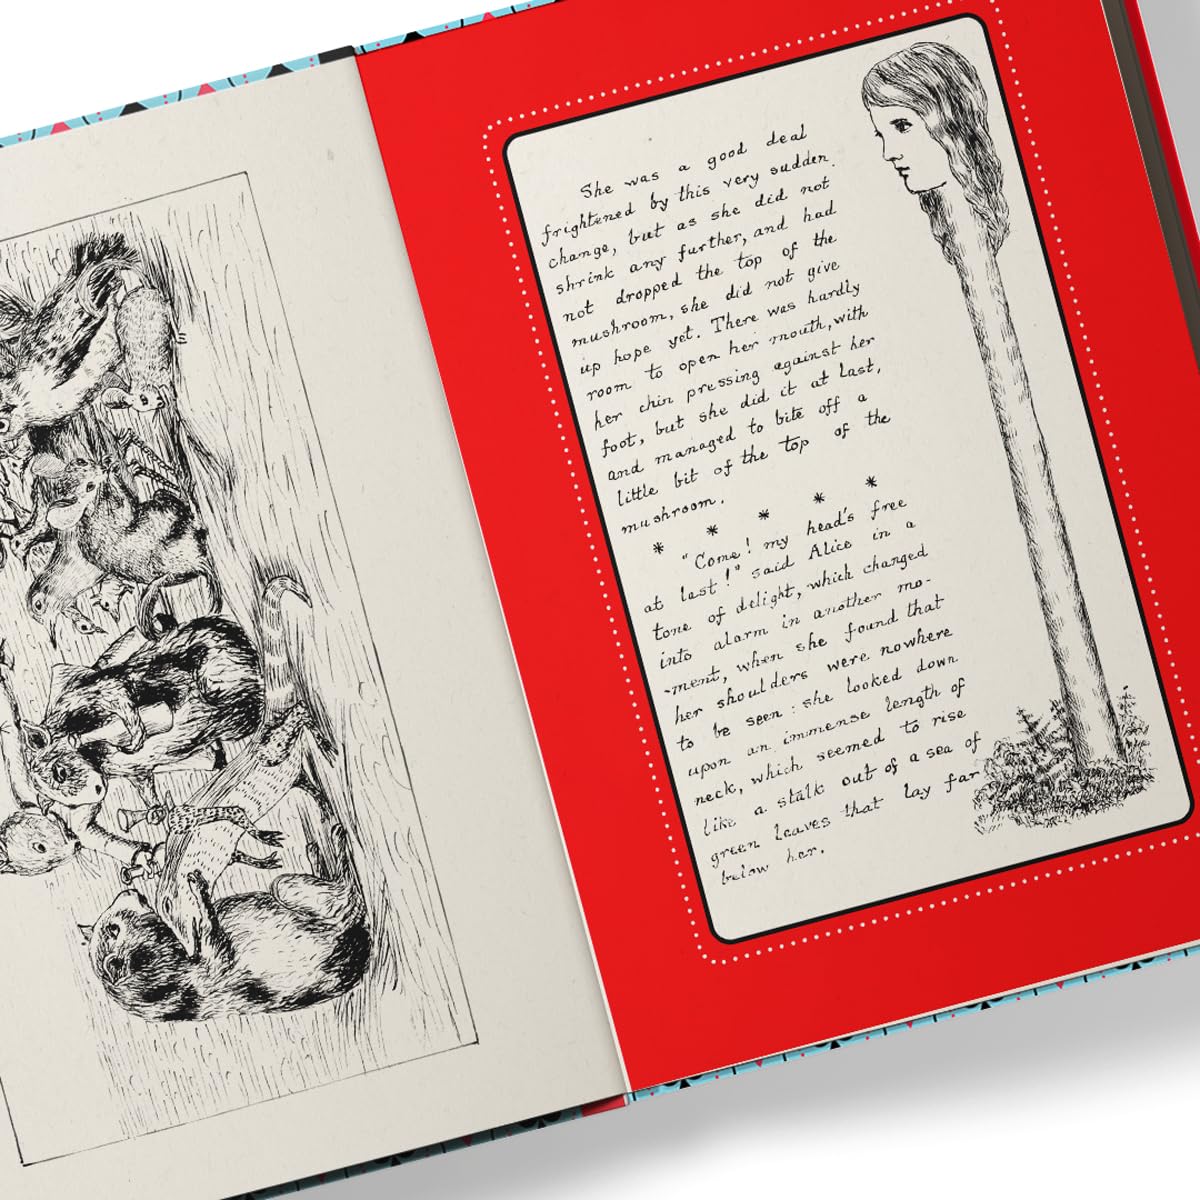 She was a good deal
frightened by this very sudden
change, but as she did not
shrink any further, and had
not dropped the top of the
mushroom, she did not give
up hope yet. There was hardly
room to open her mouth, with
her chin pressing against her
foot, but she did it at last,
and managed to bite off a
little bit of the top of the
mushroom.
* * * * *
"Come! my head's free
at last!" said Alice in a
tone of delight, which changed
into alarm in another mo-
-ment, when she found that
her shoulders were nowhere
to be seen: she looked down
upon an immense length of
neck, which seemed to rise
like a stalk out of a sea of
green leaves that lay far
below her.